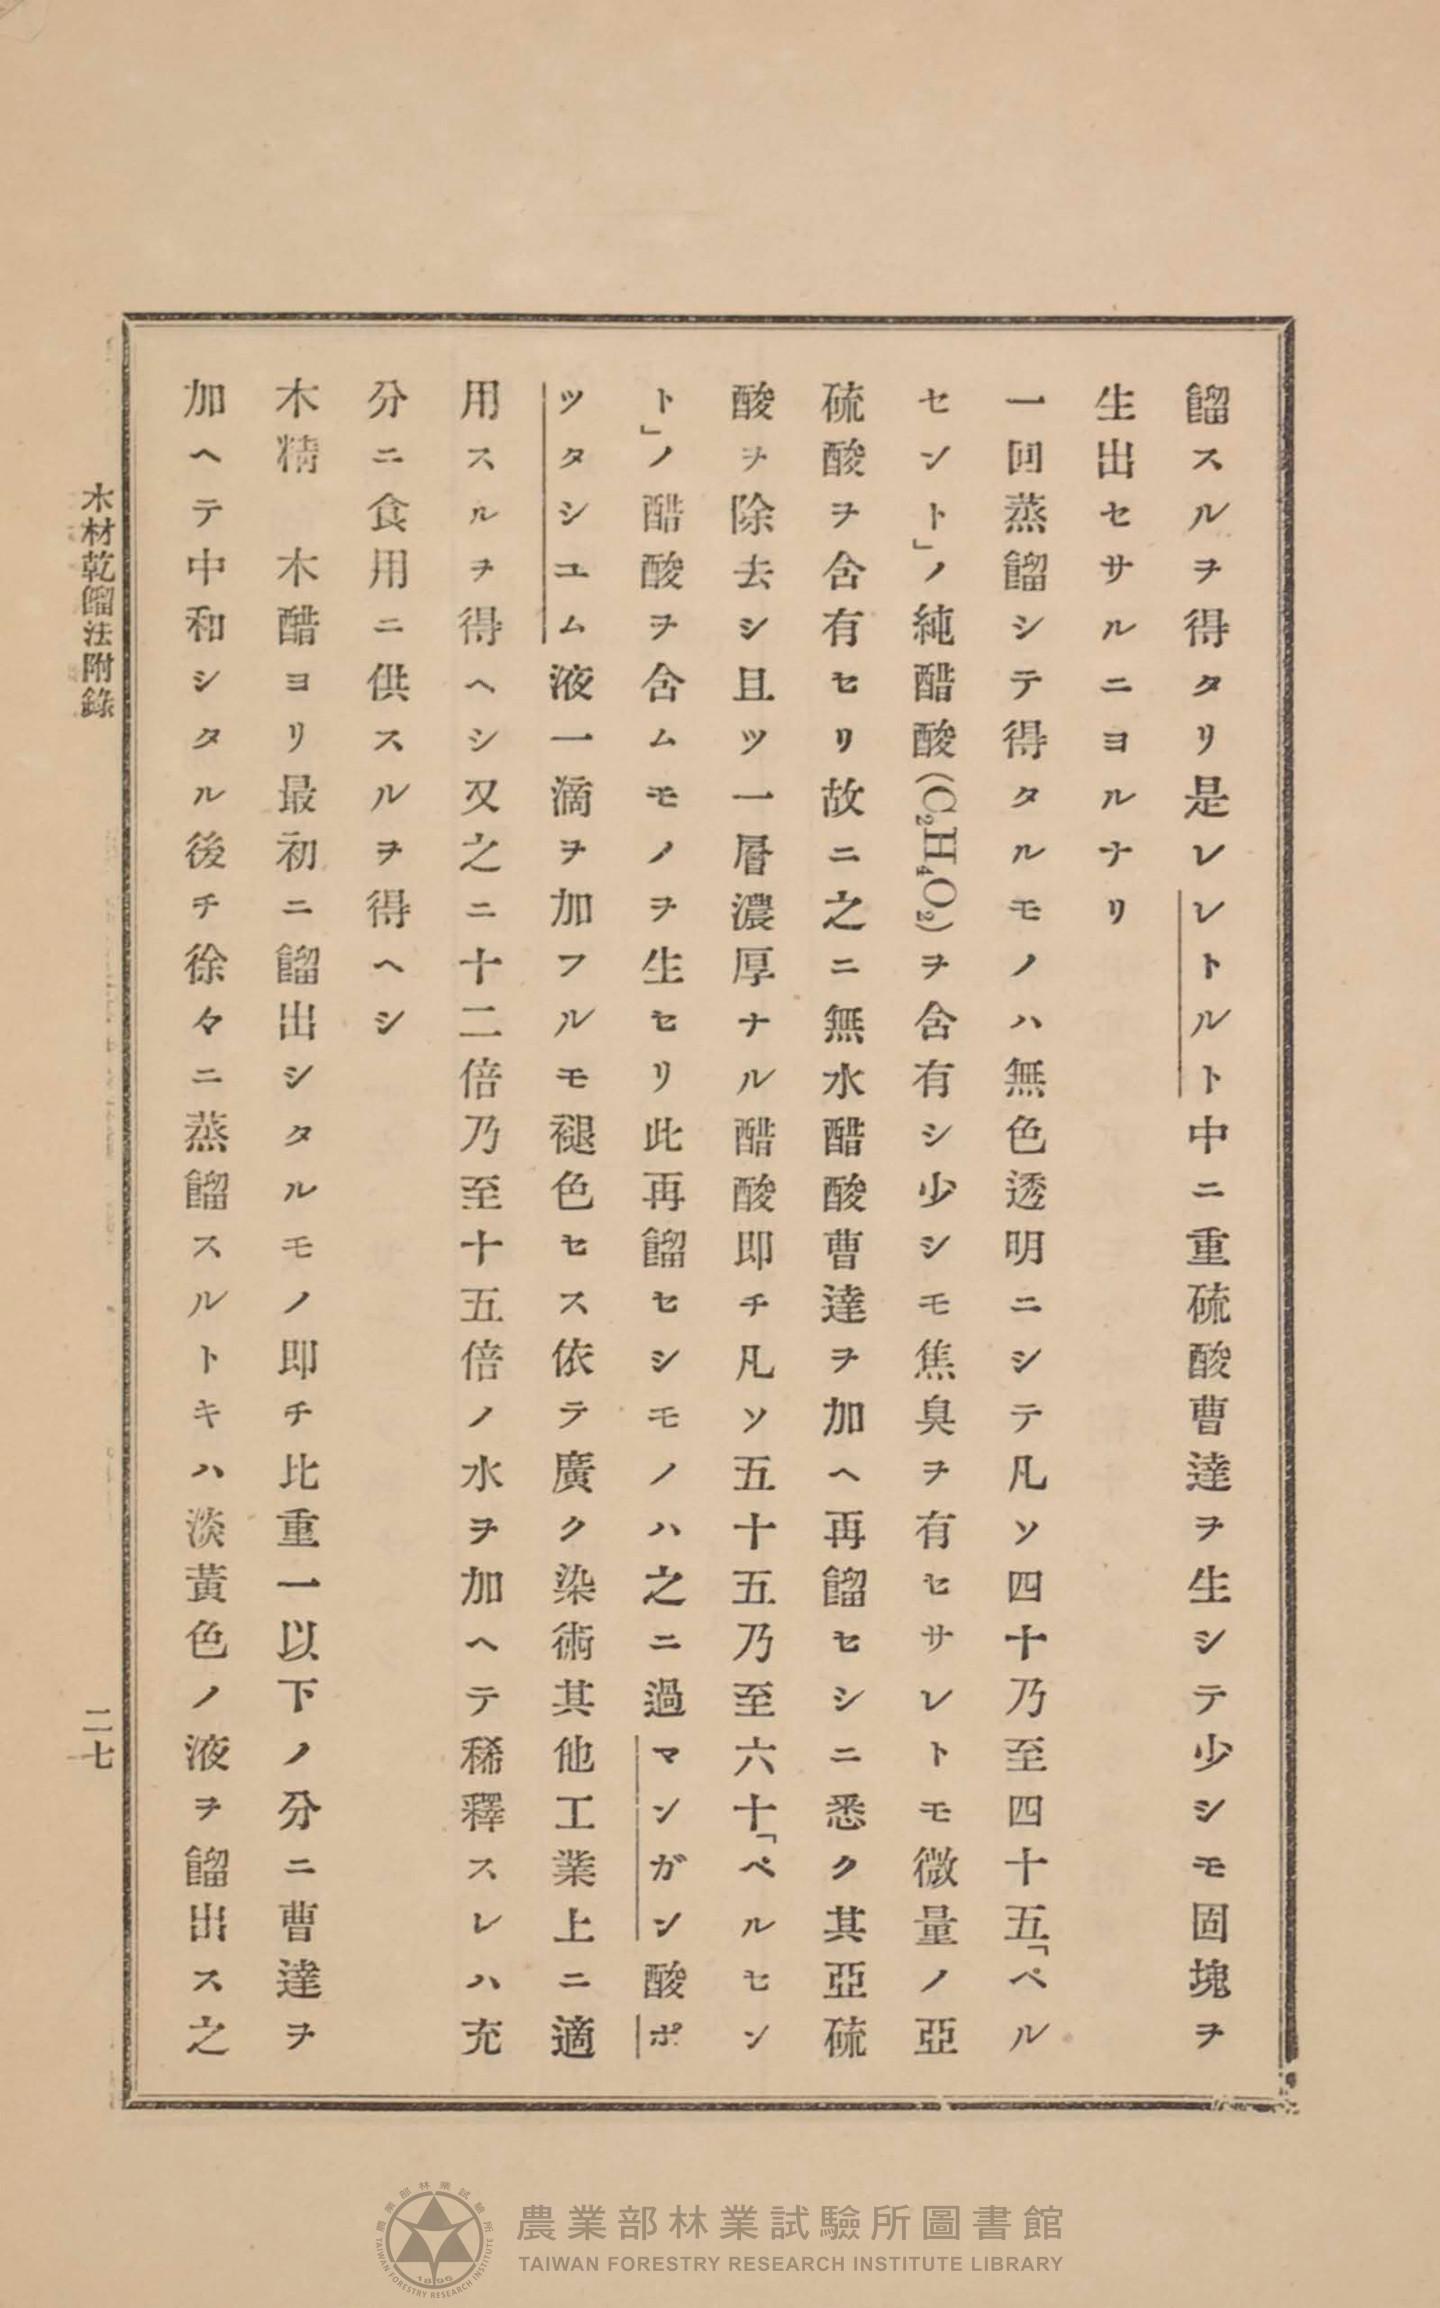 餾スルヲ得タリ是レレトルト中ニ重硫酸曹達ヲ生シテ少シモ固塊ヲ
生出セサルニヨルナリ
一回蒸餾シテ得タルモノハ無色透明ニシテ凡ソ四十乃至四十五「ペル
セント」ノ純醋酸(C₂H₄O₂)ヲ含有シ少シモ焦臭ヲ有セサレトモ微量ノ亞
硫酸ヲ含有セリ故ニ之ニ無水醋酸曹達ヲ加ヘ再餾セシニ悉ク其亞硫
酸ヲ除去シ且ツ一層濃厚ナル醋酸即チ凡ソ五十五乃至六十「ペルセン
ト」ノ醋酸ヲ含ムモノヲ生セリ此再餾セシモノハ之ニ過マンガン酸ポ
ツタシユム液一滴ヲ加フルモ褪色セス依テ廣ク染術其他工業上ニ適
用スルヲ得ヘシ又之ニ十二倍乃至十五倍ノ水ヲ加ヘテ稀釋スレハ充
分ニ食用ニ供スルヲ得ヘシ
木精　木醋ヨリ最初ニ餾出シタルモノ即チ比重一以下ノ分ニ曹達ヲ
加ヘテ中和シタル後チ徐々ニ蒸餾スルトキハ淡黃色ノ液ヲ餾出ス之
木材乾餾法附錄
二七
農業部林業試驗所圖書館
TAIWAN FORESTRY RESEARCH INSTITUTE LIBRARY
農業部林業試驗所
TAIWAN FORESTRY RESEARCH INSTITUTE
1896